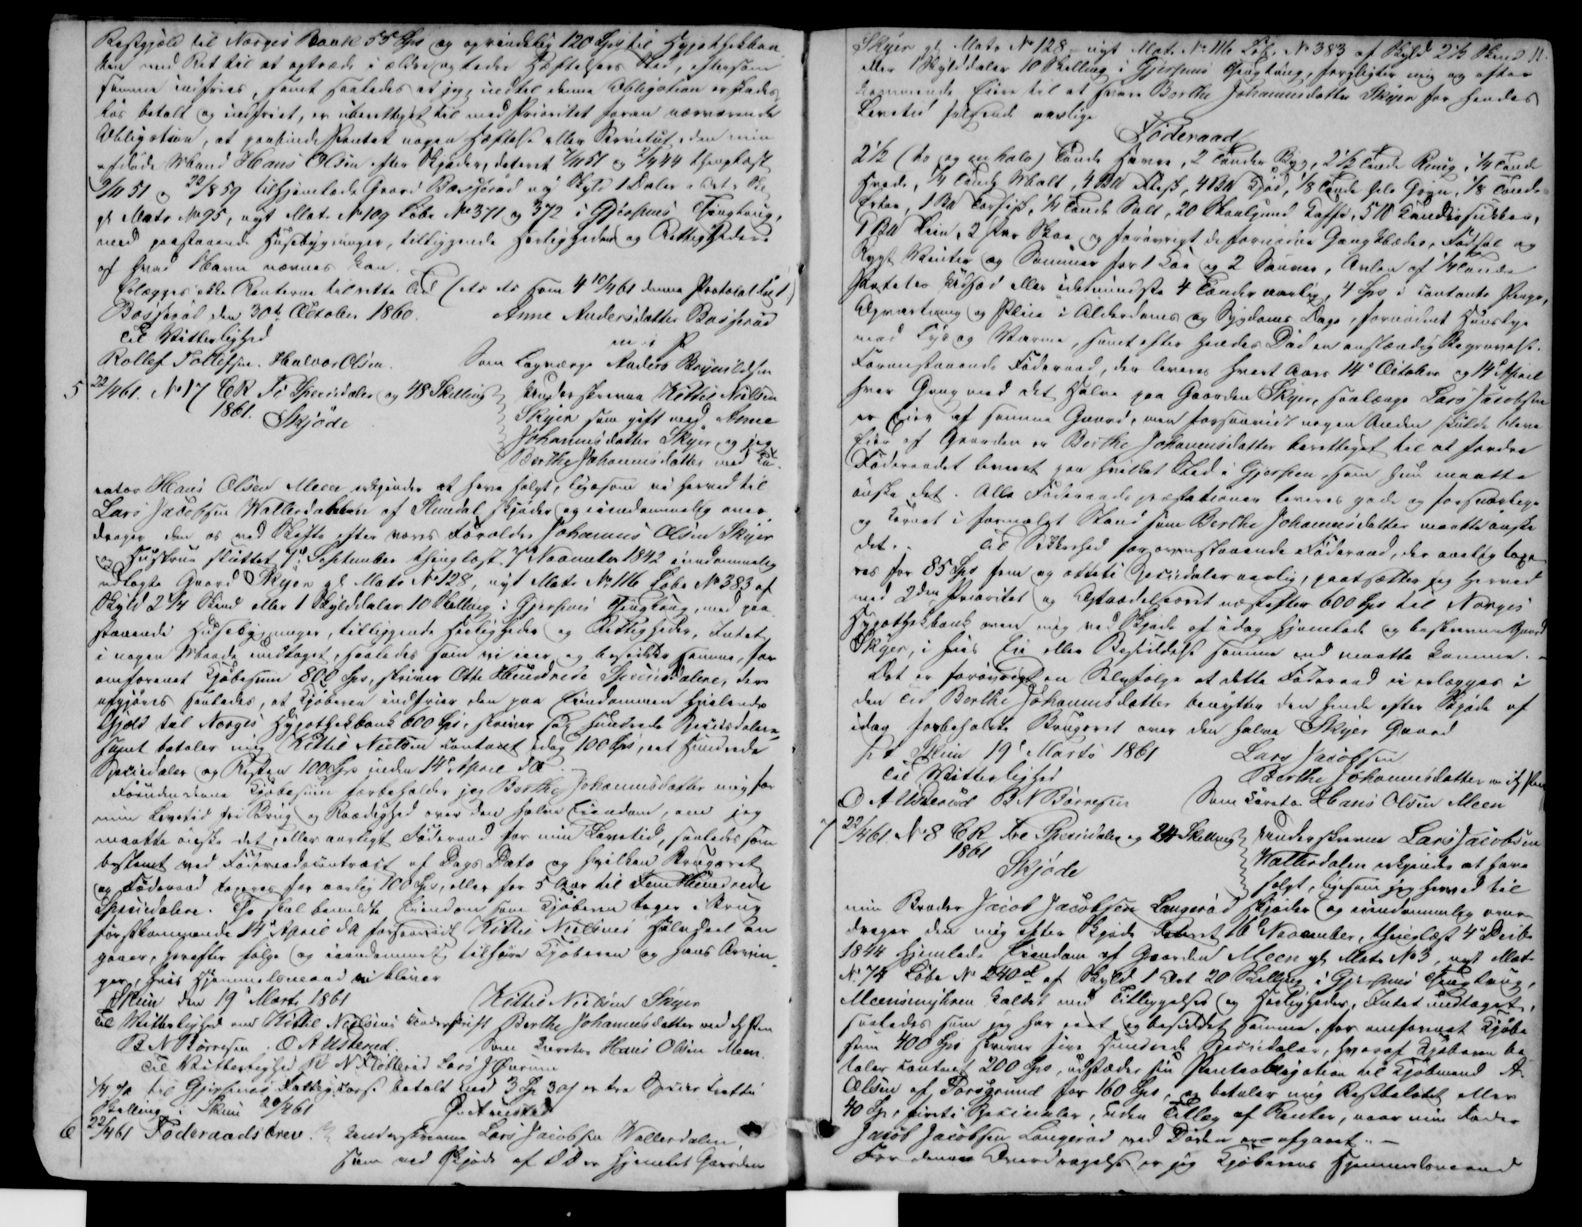 Restgjæld til Norges Bank 55 Spd og oprindelig 120 Spd til Hypothekban
ken med Ret til at optræde i ældre Hæftelsers Sted, eftersom
samme indfries, samt saaledes at jeg, indtil denne Obligation er skades
løs betalt og indfriet, er uberettiget til med Prioritet foran nærværende
Obligation, at paahefte Pantet nogen Hæftelse eller Servitut, den min
afdøde Mand Hans Olsen efter Skjøder, dateret
tilhjemlede Gaard Basserød
gl. Matr. No 95, nyt Mat. No 109 Løbe No 371 og 372 i Gjerpens Thinglaug,
med paastaaende Husebygninger, tilliggende Herligheder og Rettigheder
af hvad Navn nævnes kan.
Erlægges ikke Renterne til rette Tid (etc etc som 4 denne Protokol
Basserød den 30te October 1860. Anne Andersdatter Basserød
Til Vitterlighed m. i. P.
Rollef Tollefsen. Halvor Olsen. Som Laugværge Anders
5 22/4 61. No 17 CR Ti Speciedaler og 48 Skilling Undertegnede Kittil Nielsen
1861. Skjøde Skyer som gift med Anne
Johannesdatter Skyer og jeg
Berthe Johannesdatter med Cu-
rator Hans Olsen Meen erkjender at have solgt, ligesom vi herved til
Lars Jacobsen Wallerdahlen af Slemdal skjøder og eiendommelig over
drager den os ved Skifte efter vores Forældre Johannes Olsen Skyer
og Hustrue sluttet September thinglæst 7de November 1842 eiendommelig
udlagte Gaard Skyer gl. Matr No 128, nyt Matr No 116 Løbe No 383 af
Skyld 2 1/4 Skind eller 1 Skylddaler 10 Skilling i Gjerpens Thinglaug, med paa
staaende Husebygninger, tilliggende Herligheder og Rettigheder, Intet
i nogen Maade undtaget, saaledes som vi eier og besidder samme, for
omforenet Kjøbesum 800 Spd, skriver Otte Hundrede Speciedaler, der
afgjøres saaledes, at Kjøberen indfrier den paa Eiendommen hvilende
Gjæld til Norges Hypothekbank 600 Spd, skriver sex Hundrede Speciedaler
samt betaler mig Kittil Nielsen contant idag 100 Spd, et Hundrede
Speciedaler og Resten 100 Spd inden 14de April d. A.
Foruden denne Kjøbesum forbeholder jeg Berthe Johannesdatter mig for
min Levetid fri Brug og Raadighed over den halve Eiendom, om jeg
maatte ønske det, eller aarligt Føderaad for min Levetid, saaledes som
bestemt ved Føderaadscontract af Dags Dato og hvilken Brugsret
og Føderaad taxeres for aarlig 100 Spd, eller for 5 Aar til Fem Hundrede
Speciedaler. Og skal bemeldte Eiendom som Kjøberen tager i Brug
førstkommende 14de April d. A. forsaavidt Kittil Nielsens Halvdeel an
gaaer, herefter følge og eiendommelig tilhøre Kjøberen og hans Arvin-
ger, hvis Hjemmelsmænd vi bliver
Skien den 19de Marts 1861 Kittil Nielsen Skyer
Til Vitterlighed om Kittil Nielsens Underskrift Berthe Johannesdatter med ihf. Pen
B N Børresen. O A Ulsterud. Som Curator Hans Olsen Meen.
Til Vitterlighed P N Kløtterød Lars J Ørum
til Gjerpens Fattigkasse betalt med 3 30 s er tre Specier tretti
Skilling i Skien 20/4 61
6 22/4 61 Føderaadsbrev. Undertegnede Lars Jacobsen Wallerdalen,
som ved Skjøde af D. D. er hjemlet Gaarden
11.
Skyer gl. Matr No 128, nyt Mat. No 116 Løb. No 383 af Skyld 2 1/4 Skind
eller 1 Skylddaler 10 Skilling i Gjerpens Thinglaug, forpligter mig og efter
kommende Eiere til at svare Berthe Johannesdatter Skyer for hendes
Levetid følgende aarlige
Føderaad
2 1/2 (to og en halv) Tønde Havre, 2 Tønder Byg, 2 1/2 Tønde Rug, 1/4 Tønde
Hvede, 1/4 Tønde Malt, 4 Flesk, 4 Kjød, 1/8 Tønde hele Gryn, 1/8 Tønde
Erter, 1 Tørfisk, 1/4 Tønde Salt, 20 Skaalpund Kaffe, 5 Kandissukker,
1 Liin, 2 Par Skoe og forøvrigt de fornødne Gangklæder, Fødsel og
Røgt Vinter og Sommer for 1 Koe og 2 Sauer, Avlen af 1/4 Tønde
Poteters Udsæd eller idetmindste 4 Tønder aarlig, 4 Spd i contante Penge,
Opvartning og Pleie i Alderdoms og Sygdoms Dage, fornødent Huuslye
med Lys og Varme, samt efter hendes Død en anstændig Begravelse.
Foranstaaende Føderaad, der leveres hvert Aars 14de October og 14de April
hver Gang med det Halve paa Gaarden Skyer, saalænge Lars Jacobsen
er Eier af samme Gaard, men forsaavidt nogen Anden skulde blive
Eier af Gaarden er Berthe Johannesdatter berettiget til at fordre
Føderaadet leveret paa hvilket Sted i Gjerpen, som hun maatte
ønske det. Alle Føderaadspræstationer leveres gode og forsvarlige
og Kornet i formalet Stand som Berthe Johannesdatter maatte ønske
det. Til Sikkerhed for ovenstaaende Føderaad, der aarlig taxe
res for 85 Spd fem og otteti Speciedaler aarlig, pantsætter jeg herved
med 2den Prioritet og Optrædelsesret næstefter 600 Spd til Norges
Hypothekbank oven mig ved Skjøde af idag hjemlede og beskrevne Gaard
Skyer, i hvis Eie eller Besiddelse samme end maatte komme.
Det er forøvrigt en Selvfølge at dette Føderaad ei erlægges i
den Tid Berthe Johannesdatter benytter den hende efter Skjøde af
idag forbeholdte Brugsret over den halve Skyer Gaard
p. t. Skien 19de Marts 1861 Lars Jacobsen
Til Vitterlighed Berthe Johannesdatter m. ihf. Pen
O A Ulsterud B N Børresen Som Curator Hans Olsen Meen
7 22/4 61. No 8 CR Tre Speciedaler og 24 Skilling Underskrevne Lars Jacobsen
1861 Wallerdalen erkjender at have
Skjøde solgt, ligesom jeg herved til
min Broder Jacob Jacobsen Langerød skjøder og eiendommelig over-
drager den mig efter Skjøde dateret 16 November, thinglæst 4de Decbr
1844 hjemlede Eiendom af Gaarden Meen gl. Matr No 3, nyt Mat
No 74 Løbe No 240d af Skyld 1 Ort 20 Skilling i Gjerpens Thinglaug,
Meensmyhren kaldet med Tilliggelser og Herligheder, Intet undtaget,
saaledes som jeg har eiet og besiddet samme, for omforenet Kjøbe
sum 400 Spd skriver fire Hundrede Speciedaler, hvoraf Kjøberen be-
taler contant 200 Spd, udsteder sin Panteobligation til Kjøbmand A.
Olsen af Porsgrund for 160 Spd, og betaler mig Restbeløbet eller
40 Spd, firti Speciedaler, uden Tillæg af Renter, naar min Fader
Jacob Jacobsen Langerød ved Døden er afgaaet.
For denne Overdragelse er jeg Kjøberens Hjemmelsmand